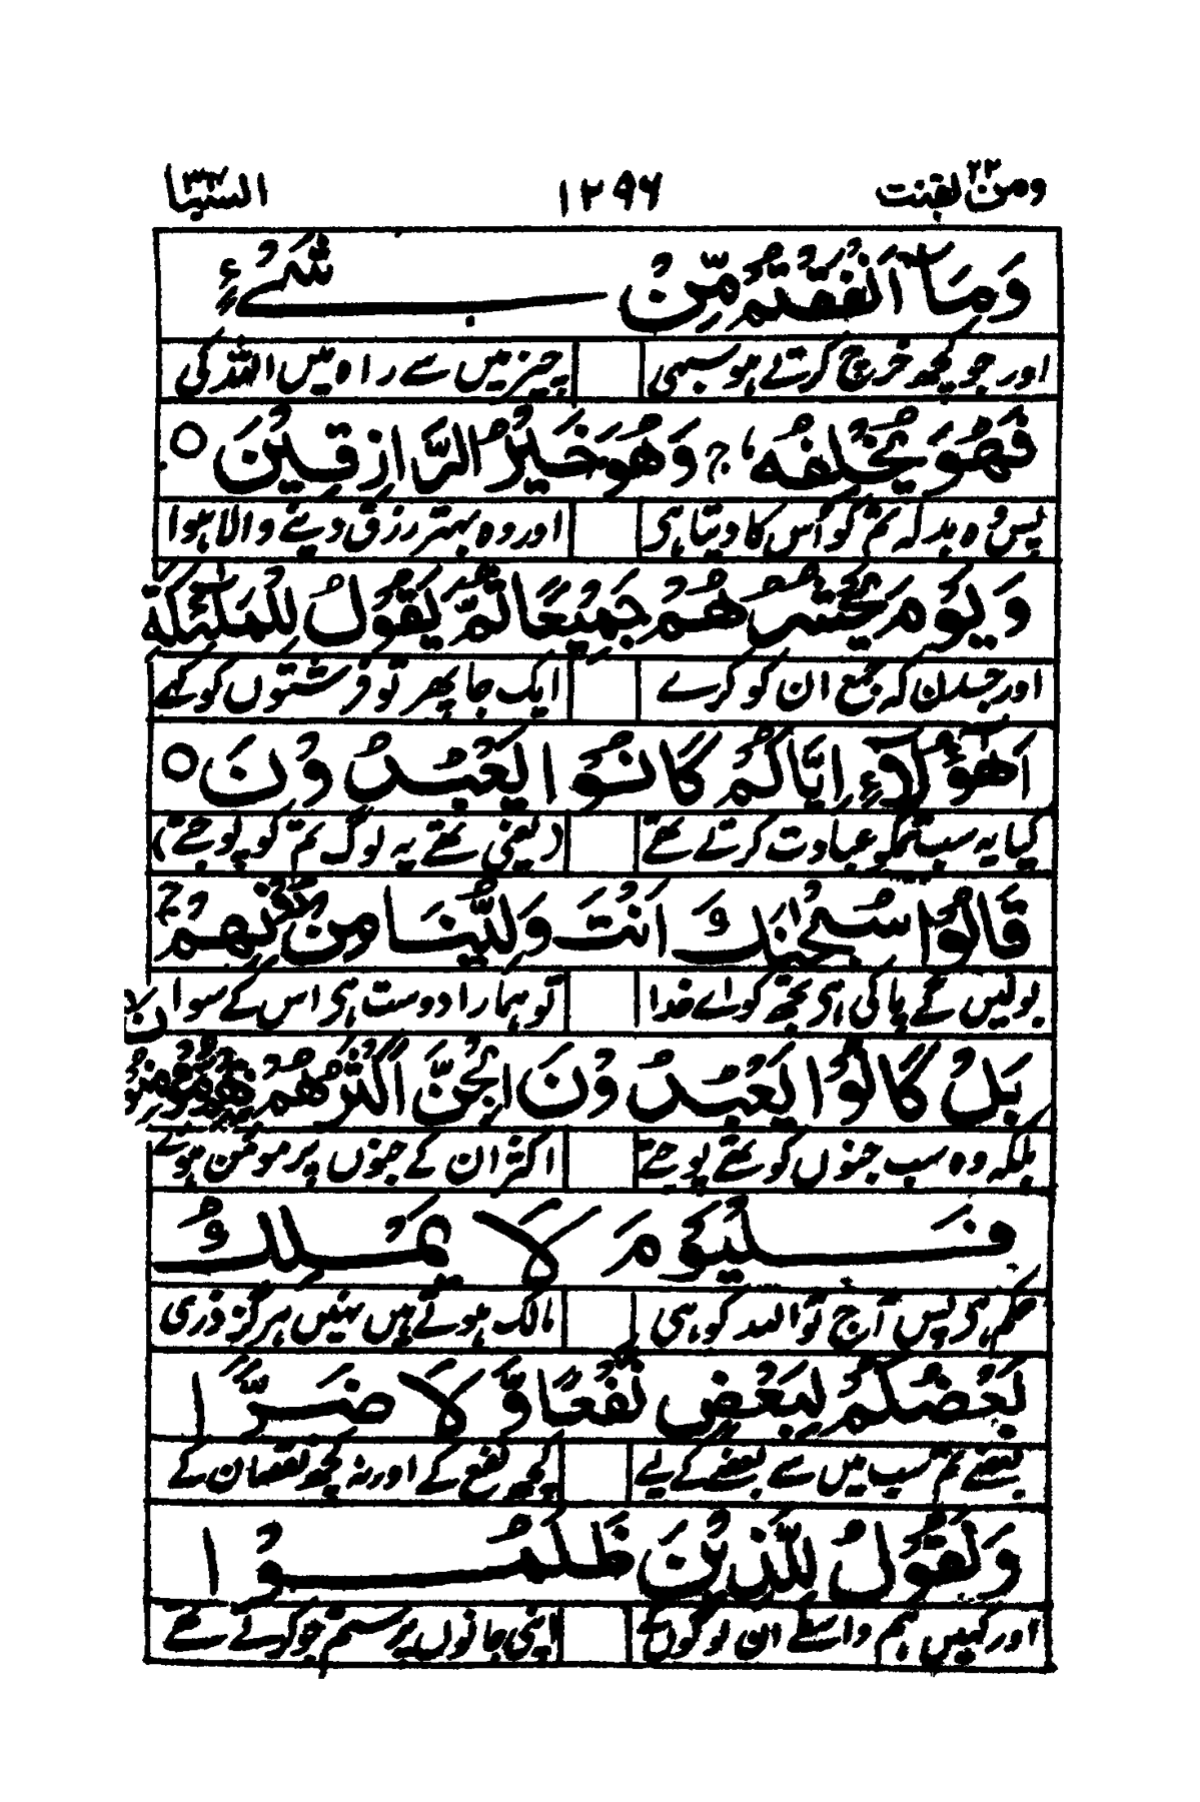 ومن یقنت ۲۲ ۱۲۹۶ السبا ۳۴
وَمَآ اَنْفَقْتُمْ مِّنْ شَیْءٍ
اور جو کچھ خرچ کرتے ہو سبھی چیز میں سے راہ میں اللہ کی
فَهُوَ يُخْلِفُهٗ ۚ وَهُوَ خَيْرُ الرَّازِقِيْنَ ○
پس وہ بدلہ تم کو اُس کا دیتا ہی اور وہ بہتر رزق دینے والا ہوا
وَيَوْمَ يَحْشُرُهُمْ جَمِيْعًا ثُمَّ يَقُوْلُ لِلْمَلٰٓئِكَةِ
اور جسدن کہ جمع ان کو کرے ایک جا پھر تو فرشتوں کو کہے
اَهٰٓؤُلَآءِ اِيَّاكُمْ كَانُوْا يَعْبُدُوْنَ ○
کیا یہ سب تمکو عبادت کرتے تھے (یعنی تھے یہ لوگ تم کو پوجتے)
قَالُوْا سُبْحٰنَكَ اَنْتَ وَلِيُّنَا مِنْ دُوْنِهِمْ ۚ
بولیں گے پاکی ہی تجھ کو اے خدا تو ہمارا دوست ہی اس کے سوا
بَلْ كَانُوْا يَعْبُدُوْنَ الْجِنَّ اَكْثَرُهُمْ بِهِمْ مُّؤْمِنُوْنَ
بلکہ وہ سب جنوں کو تھے پوجتے اکثر ان کے جنوں پر مومن ہوئے
فَالْيَوْمَ لَا يَمْلِكُ
حکم ہی پس آج تو اللہ کو ہی مالک ہوتے ہیں نہیں ہرگز ذری
بَعْضُكُمْ لِبَعْضٍ نَّفْعًا وَّلَا ضَرًّا
بعضے تم سب میں سے بعضے کے لیے کچھ نفع کے اور نہ کچھ نقصان کے
وَنَقُوْلُ لِلَّذِيْنَ ظَلَمُوْا
اور کہیں ہم واسطے ان لوگوں کے اپنی جانوں پر ستم جو کرتے تھے